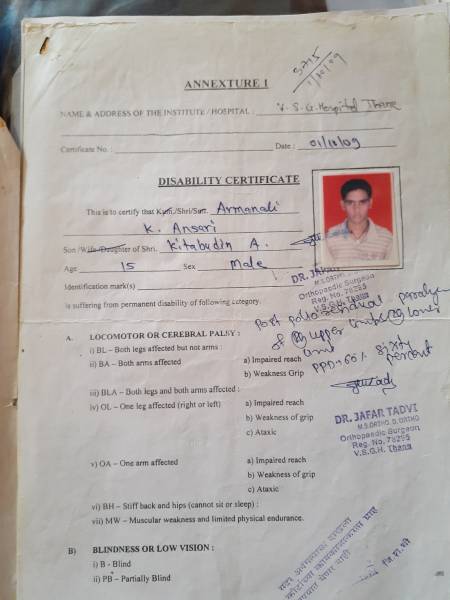 5215
1/10/09
ANNEXTURE 1
NAME & ADDRESS OF THE INSTITUTE / HOSPITAL : V. S. G. Hospital Thane
Certificate No. : Date : 01/10/09
DISABILITY CERTIFICATE
This is to certify that Kum./Shri/Smt. Armanali
K. Ansari
Son /Wife /Daughter of Shri. Kitabudin A.
Age 15 Sex Male
Identification mark(s)
is suffering from permanent disability of following category.
DR. JAFAR
M.S.ORTHO
Orthopaedic Surgeon
Reg. No. 78295
V.S.G.H. Thane
Post polio residual paralysis
of upper limb lower
limb
PPD-60% sixty
percent
A. LOCOMOTOR OR CEREBRAL PALSY :
i) BL – Both legs affected but not arms :
ii) BA – Both arms affected a) Impaired reach
b) Weakness Grip
iii) BLA – Both legs and both arms affected :
iv) OL – One leg affected (right or left) a) Impaired reach
b) Weakness of grip
c) Ataxic
DR. JAFAR TADVI
M.S.ORTHO. D.ORTHO
Orthopaedic Surgeon
Reg. No. 78295
V.S.G.H. Thane
v) OA – One arm affected a) Impaired reach
b) Weakness of grip
c) Ataxic
vi) BH – Stiff back and hips (cannot sit or sleep) :
vii) MW – Muscular weakness and limited physical endurance.
B) BLINDNESS OR LOW VISION :
i) B - Blind
ii) PB – Partially Blind